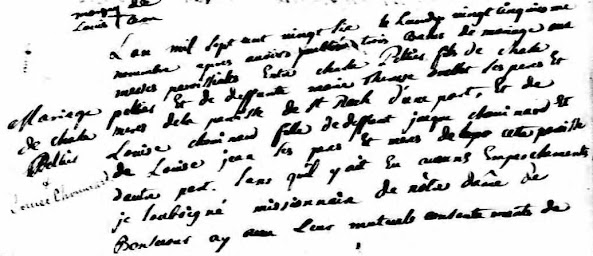 Louis
L'an mil sept cent vingt six le Lundy vingt cinquieme
novembre apres avoir publié trois Bans de mariage aux
messes parroissiales Entre charle Peltier fils de charle
peltier Et de deffunte marie Therese ses pere Et
meres de la paroisse de St Roch d'une part, Et de
Louise chouinard fille de deffunt jacque chouinard Et
de Louise jean ses pere Et meres de cette paroisse
d'autre part. sans qu'il y ait Eu aucuns Empeschements
je soubsigné missionnaire de nôtre dame de
Bonsecours ay Leur mutuels consentements de
Mariage
de charle
Peltier
&
Louise Chouinard